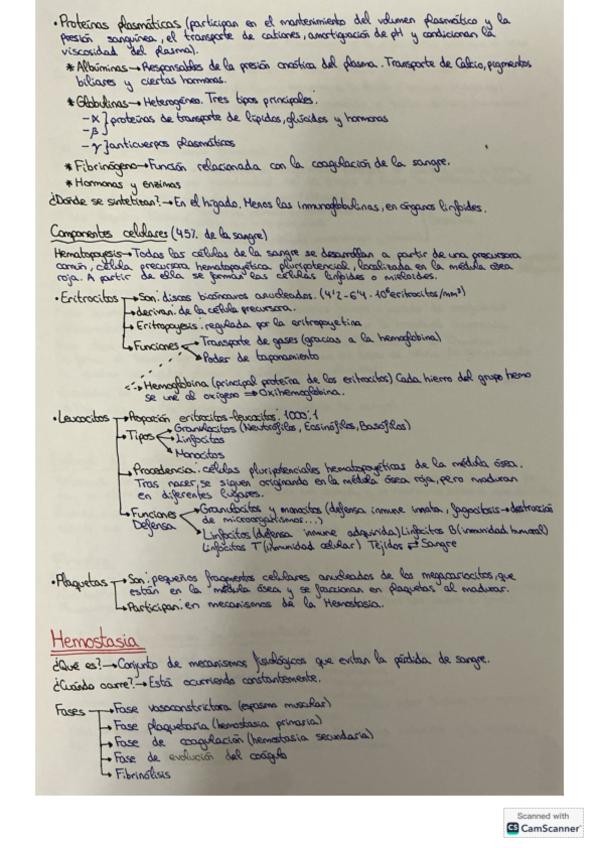 ·Proteínas plasmáticas (participan en el mantenimiento del volumen plasmático y la
presión sanguínea, el transporte de cationes, amortiguación de pH y condicionan la
viscosidad del plasma).
* Albúminas → Responsables de la presión oncótica del plasma. Transporte de Calcio, pigmentos
biliares y ciertas hormonas.
* Globulinas → Heterogéneo. Tres tipos principales:
- α } proteínas de transporte de lípidos, glúcidos y hormonas
- β
- γ } anticuerpos plasmáticos
* Fibrinógeno → Función relacionada con la coagulación de la sangre.
* Hormonas y enzimas
¿Dónde se sintetizan? → En el hígado. Menos las inmunoglobulinas, en órganos linfoides.
Componentes celulares (45% de la sangre)
Hematopoyesis → Todas las células de la sangre se desarrollan a partir de una precursora
común, célula precursora hematopoyética pluripotencial, localizada en la médula ósea
roja. A partir de ella se forman las células linfoides o mieloides.
·Eritrocitos → Son: discos bicóncavos anucleados. (4'2-6'4 · 10⁶ eritrocitos/mm³)
→ derivan: de la célula precursora.
→ Eritropoyesis: regulada por la eritropoyetina
→ Funciones → Transporte de gases (gracias a la hemoglobina)
→ Poder de taponamiento
Hemoglobina (principal proteína de los eritrocitos) Cada hierro del grupo hemo
se une al oxígeno ⇒ Oxihemoglobina.
·Leucocitos → Proporción eritrocitos-leucocitos: 1000:1
→ Tipos → Granulocitos (Neutrófilos, Eosinófilos, Basófilos)
→ Linfocitos
→ Monocitos
→ Procedencia: células pluripotenciales hematopoyéticas de la médula ósea.
Tras nacer, se siguen originando en la médula ósea roja, pero maduran
en diferentes lugares.
→ Funciones → Granulocitos y monocitos (defensa inmune innata, fagocitosis → destrucción
Defensa de microorganismos...)
→ Linfocitos (defensa inmune adquirida) Linfocitos B (inmunidad humoral)
Linfocitos T (inmunidad celular) Tejidos ⇄ Sangre
·Plaquetas → Son: pequeños fragmentos celulares anucleados de los megacariocitos, que
están en la médula ósea y se fraccionan en plaquetas al madurar.
→ Participan: en mecanismos de la Hemostasia.
Hemostasia
¿Qué es? → Conjunto de mecanismos fisiológicos que evitan la pérdida de sangre.
¿Cuándo ocurre? → Está ocurriendo constantemente.
Fases → Fase vasoconstrictora (espasmo muscular)
→ Fase plaquetaria (hemostasia primaria)
→ Fase de coagulación (hemostasia secundaria)
→ Fase de evolución del coágulo
→ Fibrinólisis
Scanned with
CS CamScanner